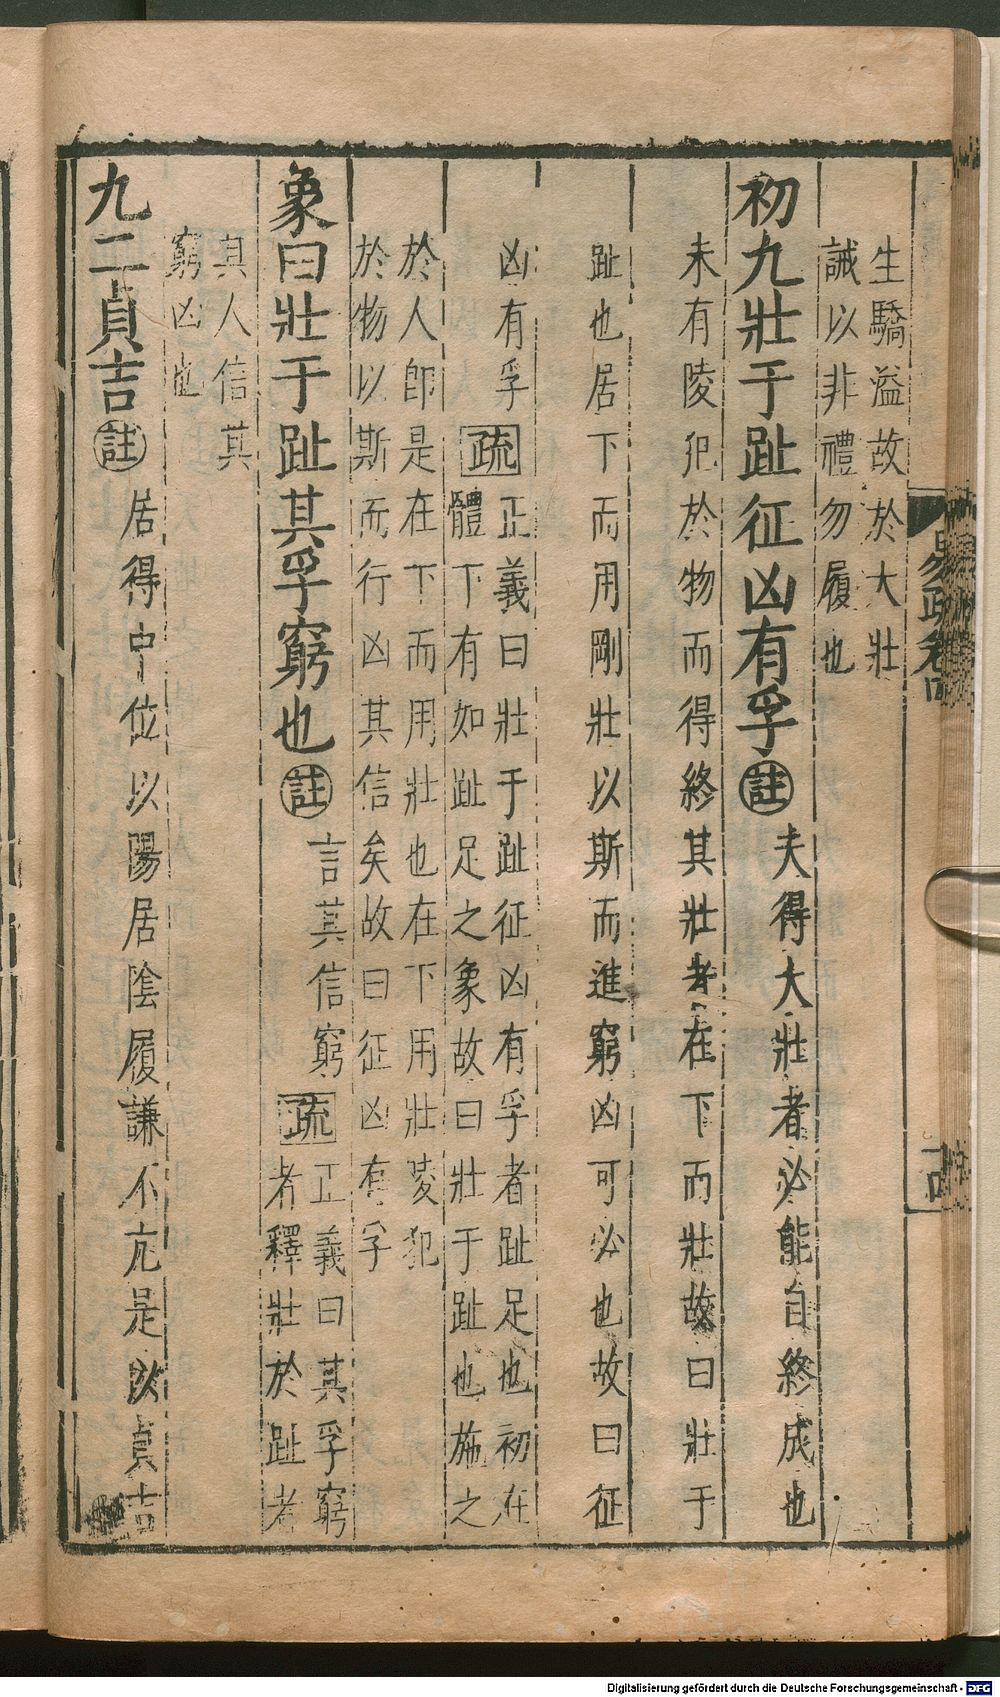 生驕溢故於大壯
誡以非禮勿履也
初九壯于趾征凶有孚註夫得大壯者必能自終成也
未有陵犯於物而得終其壯者在下而壯故曰壯于
趾也居下而用剛壯以斯而進窮凶可必也故曰征
凶有孚疏正義曰壯于趾征凶有孚者趾足也初在
體下有如趾足之象故曰壯于趾也施之
於人即是在下而用壯也在下用壯陵犯
於物以斯而行凶其信矣故曰征凶有孚
象曰壯于趾其孚窮也註言其信窮疏正義曰其孚窮
者釋壯於趾者
其人信其
窮凶也
九二貞吉註居得中位以陽居陰履謙不亢是以貞吉
易疏卷四
十四
Digitalisierung gefördert durch die Deutsche Forschungsgemeinschaft - DFG